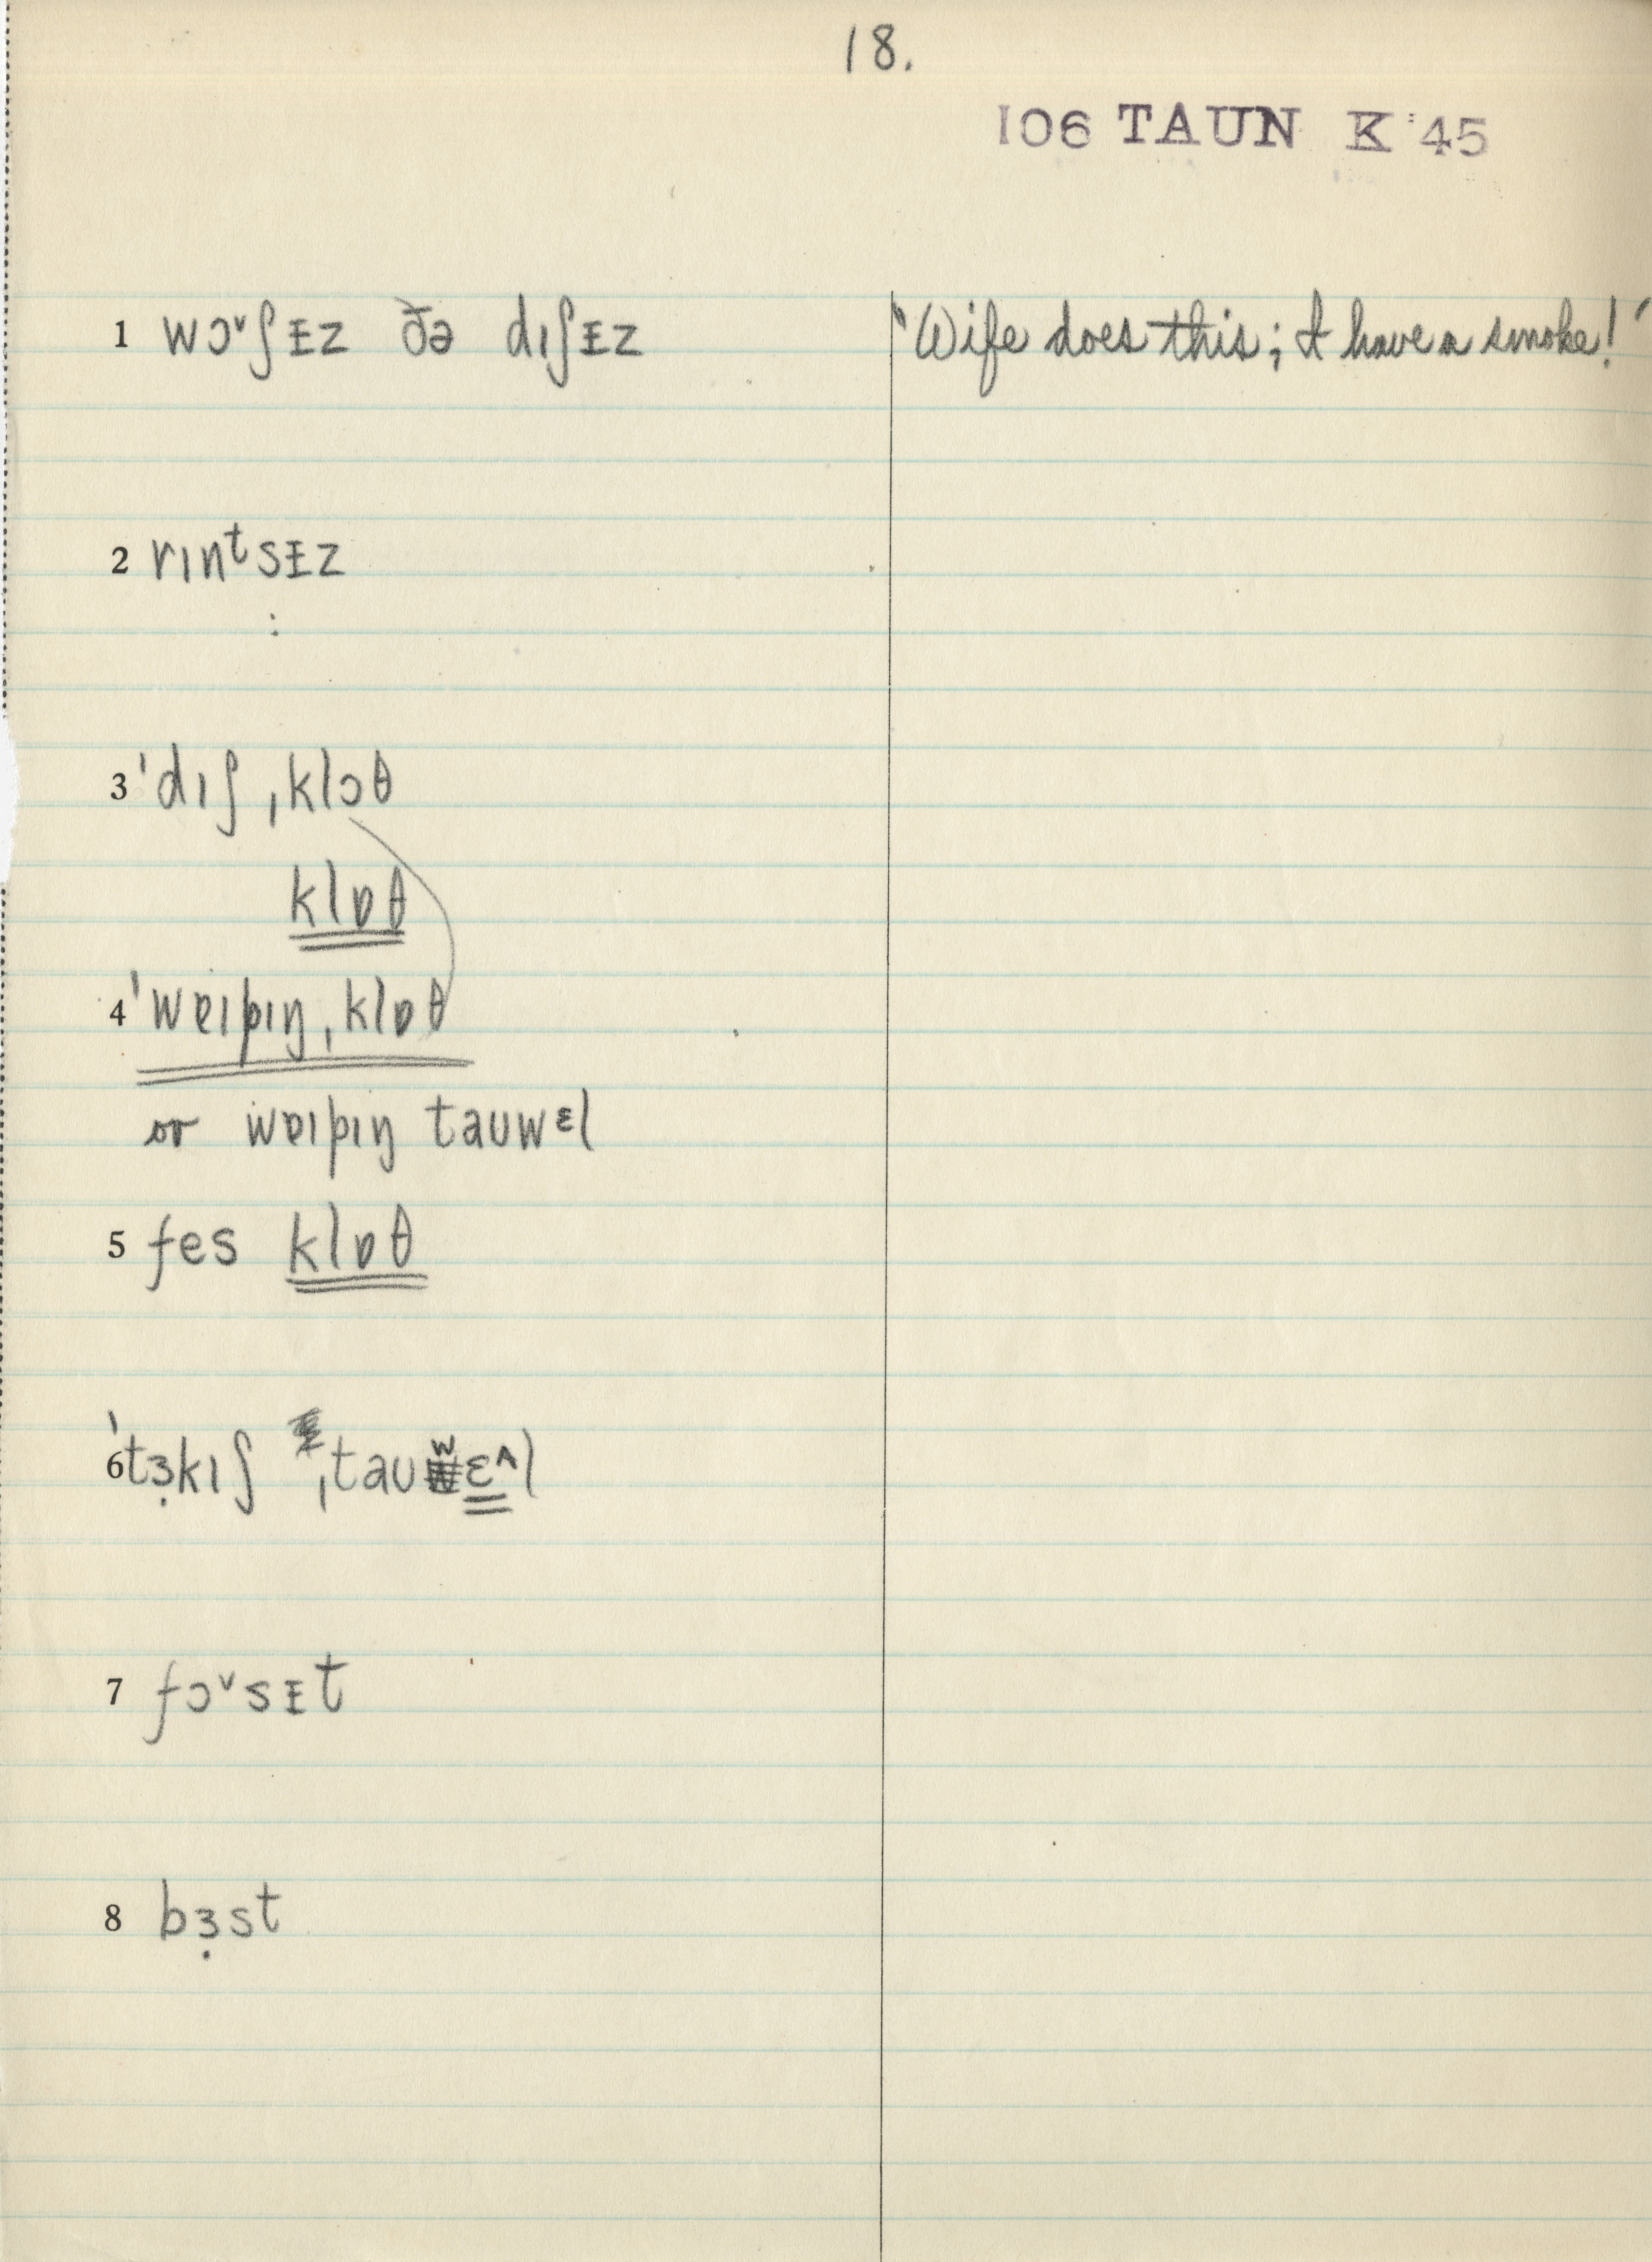 18.
106 TAUN K '45
1 wɔᵛʃᵻz ðə dɪʃᵻz "Wife does this; I have a smoke!"
2 rɪnᵗsᵻz
3 ˈdɪʃˌklɔθ
klɒθ
4 ˈwɐɪpɪŋˌklɒθ
or wɐɪpɪŋ tauwᵋl
5 fes klɒθ
6 ˈtɜ̣kɪʃ ˌtauʷɛ^l
7 fɔᵛsᵻt
8 bɜ̣st